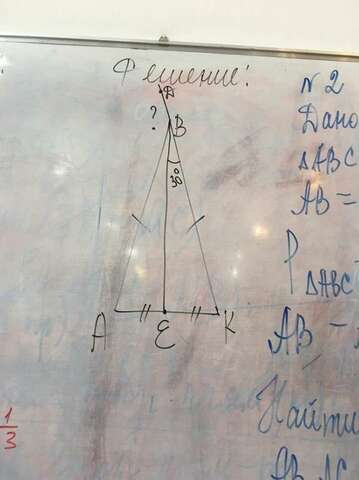 Решение:
D
?
B
30°
A
E
K
N 2
Дано
ΔABC
AB =
P ΔABC
AB -
Найти
AB, AC
1
3